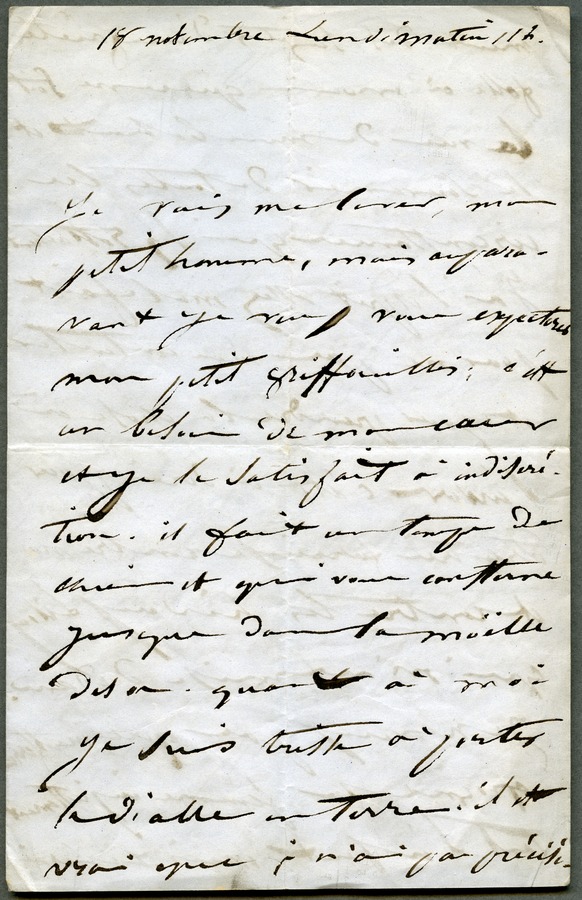 18 novembre Lundi matin, 11 h.
Je vais me lever, mon
petit homme, mais aupara-
vant je vais vous expectorer
mon petit griffouillis, c'est
un besoin de mon cœur
et je le satisfait à indiscré-
tion. il fait un temps de
chien et qui vous consterne
jusque dans la moëlle
des os. quant à moi
je suis triste à porter
le diable en terre. il est
vrai que je n'ai pas précisé-